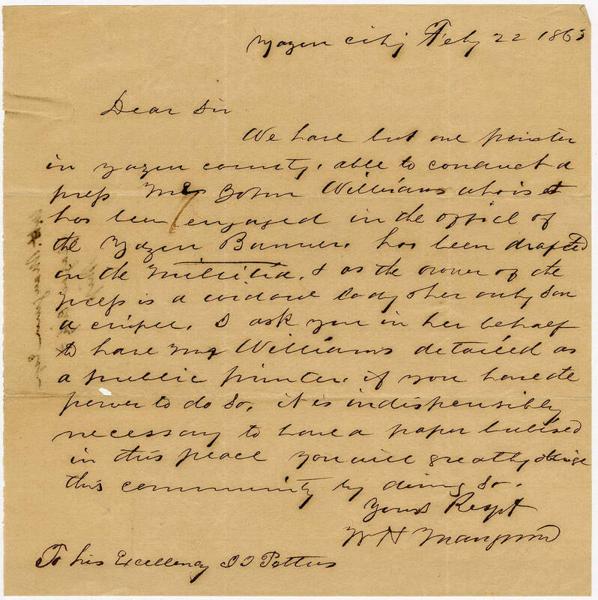 Yazoo city Feby 22 1863
Dear Sir
We have but one printer
in yazoo county, able to conduct a
press Mr John Williams who is
has been engaged in the office of
the Yazoo Banner. has been drafted
in the militia, & as the owner of the
press is a widow lady & her only son
a criple. I ask you in her behalf
to have Mr Williams detailed as
a public printer, if you have the
power to do so, it is indispensibly
necessary to have a paper
in this place you will greatly oblige
this community by doing so.
Yours Respt
W H
To his Excellency J J Pettus